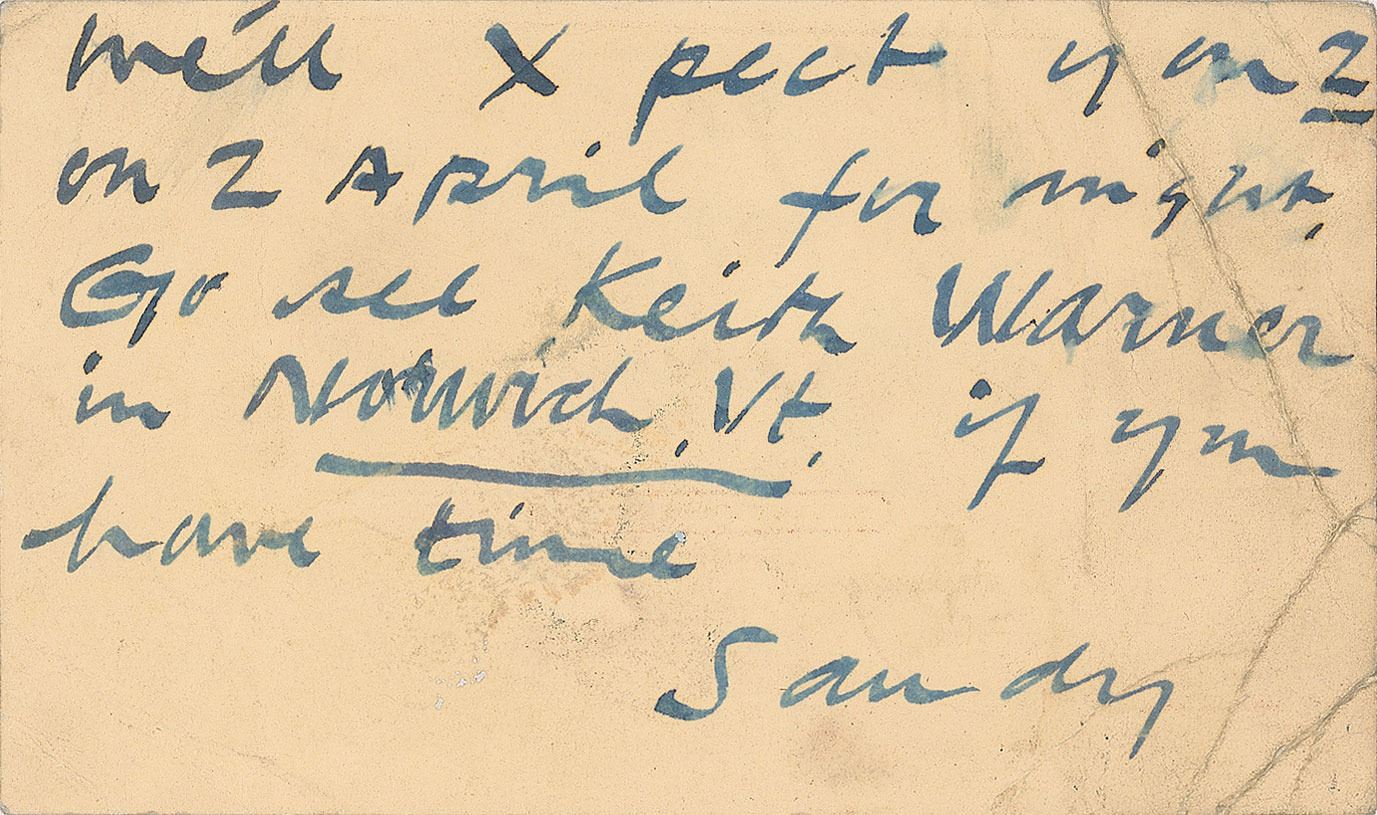 We'll X pect you 2
on 2 April for night.
Go see Keith Warner
in Norwich, Vt. if you
have time
Sandy